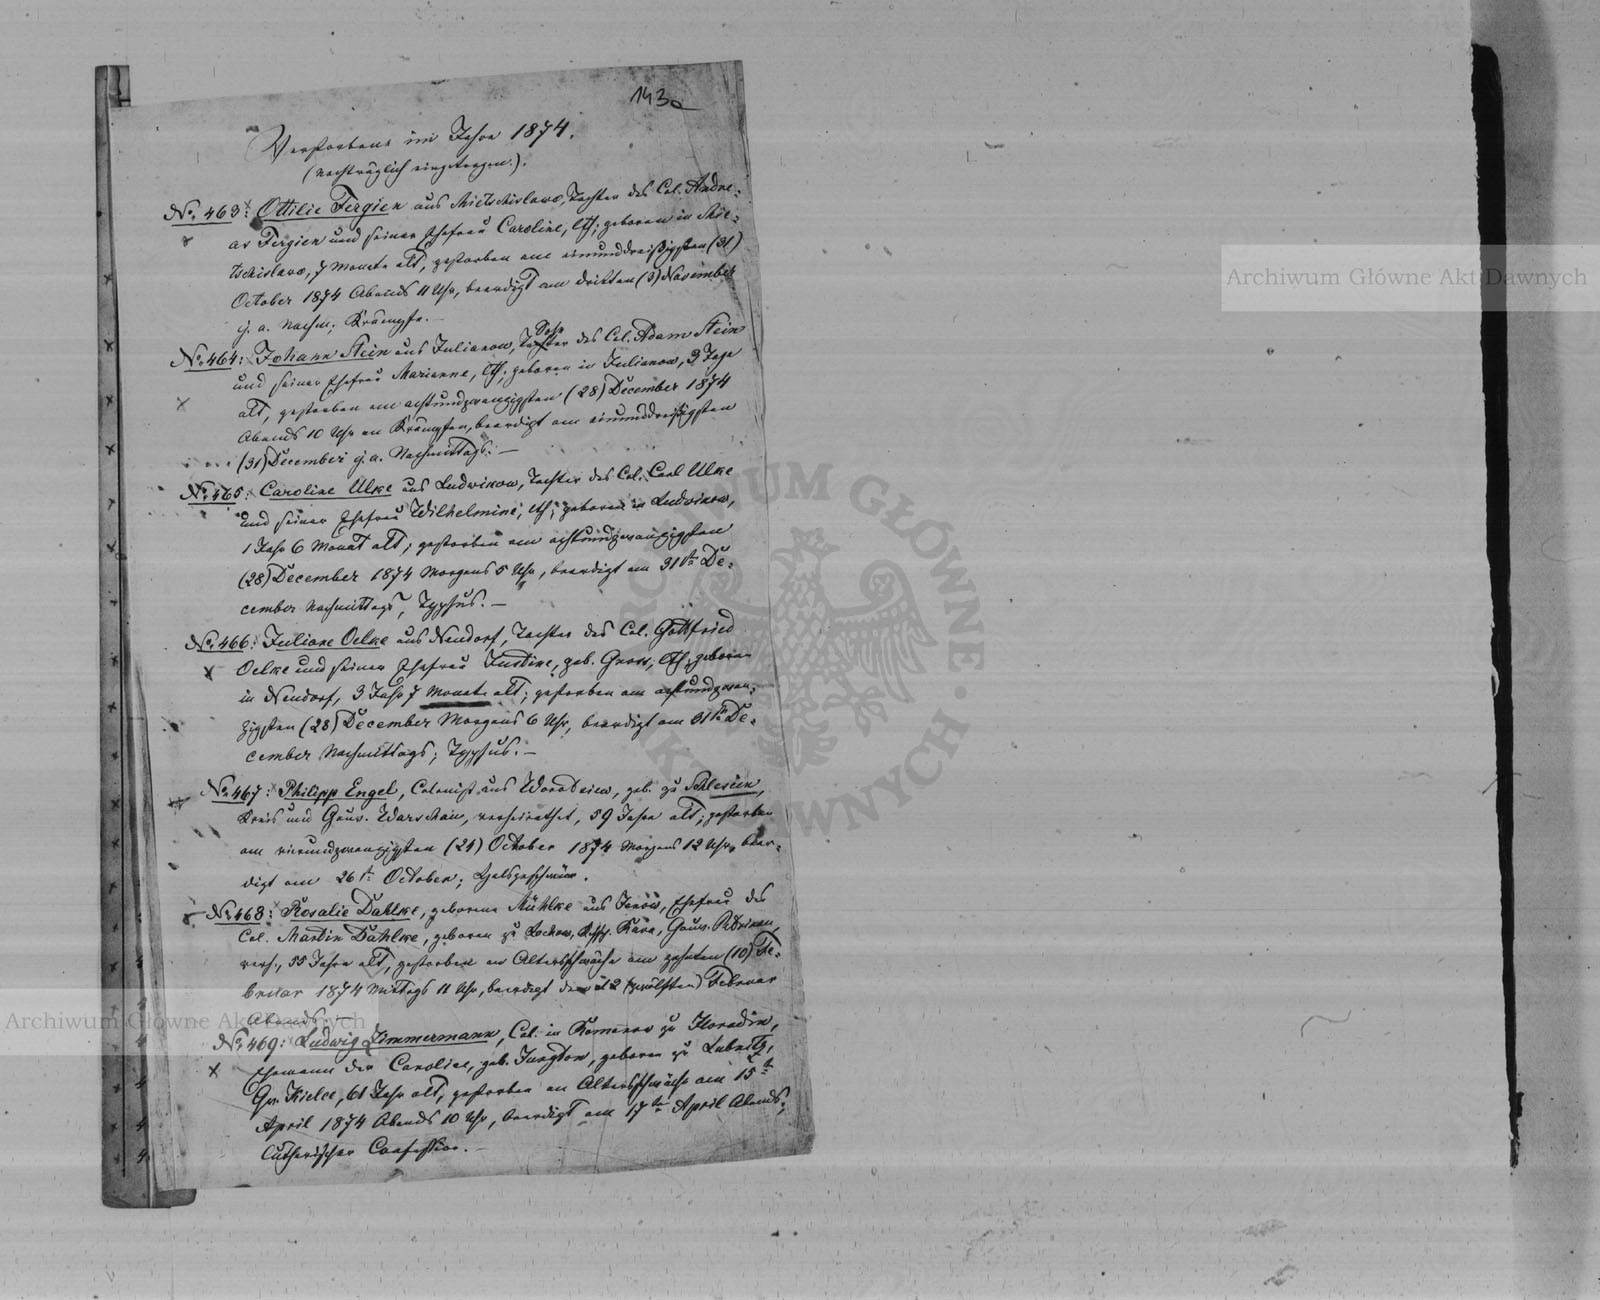 143a
Verstorbene im Jahre 1874.
(nachträglich eingetragen.).
No. 463: Ottilie Fergien aus Mietschislawo, Tochter des Col. Andre-
as Fergien und seiner Ehefrau Caroline, luth; geboren in Mie-
tschislawo, 7 Monate alt, gestorben am einunddreißigsten (31)
October 1874 Abends 11 Uhr, beerdigt am dritten (3) November
j. a. Nachm; Krämpfe. —
No. 464: Johann Stein aus Julianow, Tochter Sohn des Col. Adam Stein
und seiner Ehefrau Marianne, luth; geboren in Julianow, 3 Tage
alt, gestorben am achtundzwanzigsten (28) December 1874
Abends 10 Uhr an Krämpfen, beerdigt am einunddreißigsten
(31) December j. a. Nachmittags. —
No. 465: Caroline Ulke aus Ludwikow, Tochter des Col. Carl Ulke
und seiner Ehefrau Wilhelmine, luth; geboren in Ludwikow,
1 Jahr 6 Monat alt; gestorben am achtundzwanzigsten
(28) December 1874 Morgens 5 Uhr, beerdigt am 31ten De-
cember Nachmittags, Typhus. —
No. 466: Juliane Oelke aus Neudorf, Tochter des Col. Gottfried
Oelke und seiner Ehefrau Justine, geb. Gross, luth; geboren
in Neudorf, 3 Jahr 7 Monate alt; gestorben am achtundzwan-
zigsten (28) December Morgens 6 Uhr, beerdigt am 31ten De-
cember Nachmittags; Typhus. —
No. 467: Philipp Engel, Colonist aus geb. zu Schlesien,
Kreis und Gouv. Warschau, verheirathet, 59 Jahre alt; gestorben
am vierundzwanzigsten (24) October 1874 Morgens 12 Uhr, beer-
digt am 26t. October; Halsgeschwür.
No. 468: Rosalie Dahlke, geborene Mühlke aus Ehefrau des
Col. Martin Dahlke, geboren zu Gouv.
verh., 55 Jahre alt, gestorben an Altersschwäche am zehnten (10) Fe-
bruar 1874 Mittags 11 Uhr, beerdigt den 12 (zwölften) Februar
Abends. —
No. 469: Ludwig Zimmermann, Col. in Romanow zu
Ehemann der Caroline, geb. geboren zu
Gv. Kielce, 61 Jahr alt, gestorben an Altersschwäche am 15ten
April 1874 Abends 10 Uhr, beerdigt am 17ten April Abends;
lutherischer Confession. —
Archiwum Główne Akt Dawnych
Archiwum Główne Akt Dawnych
ARCHIWUM GŁÓWNE AKT DAWNYCH